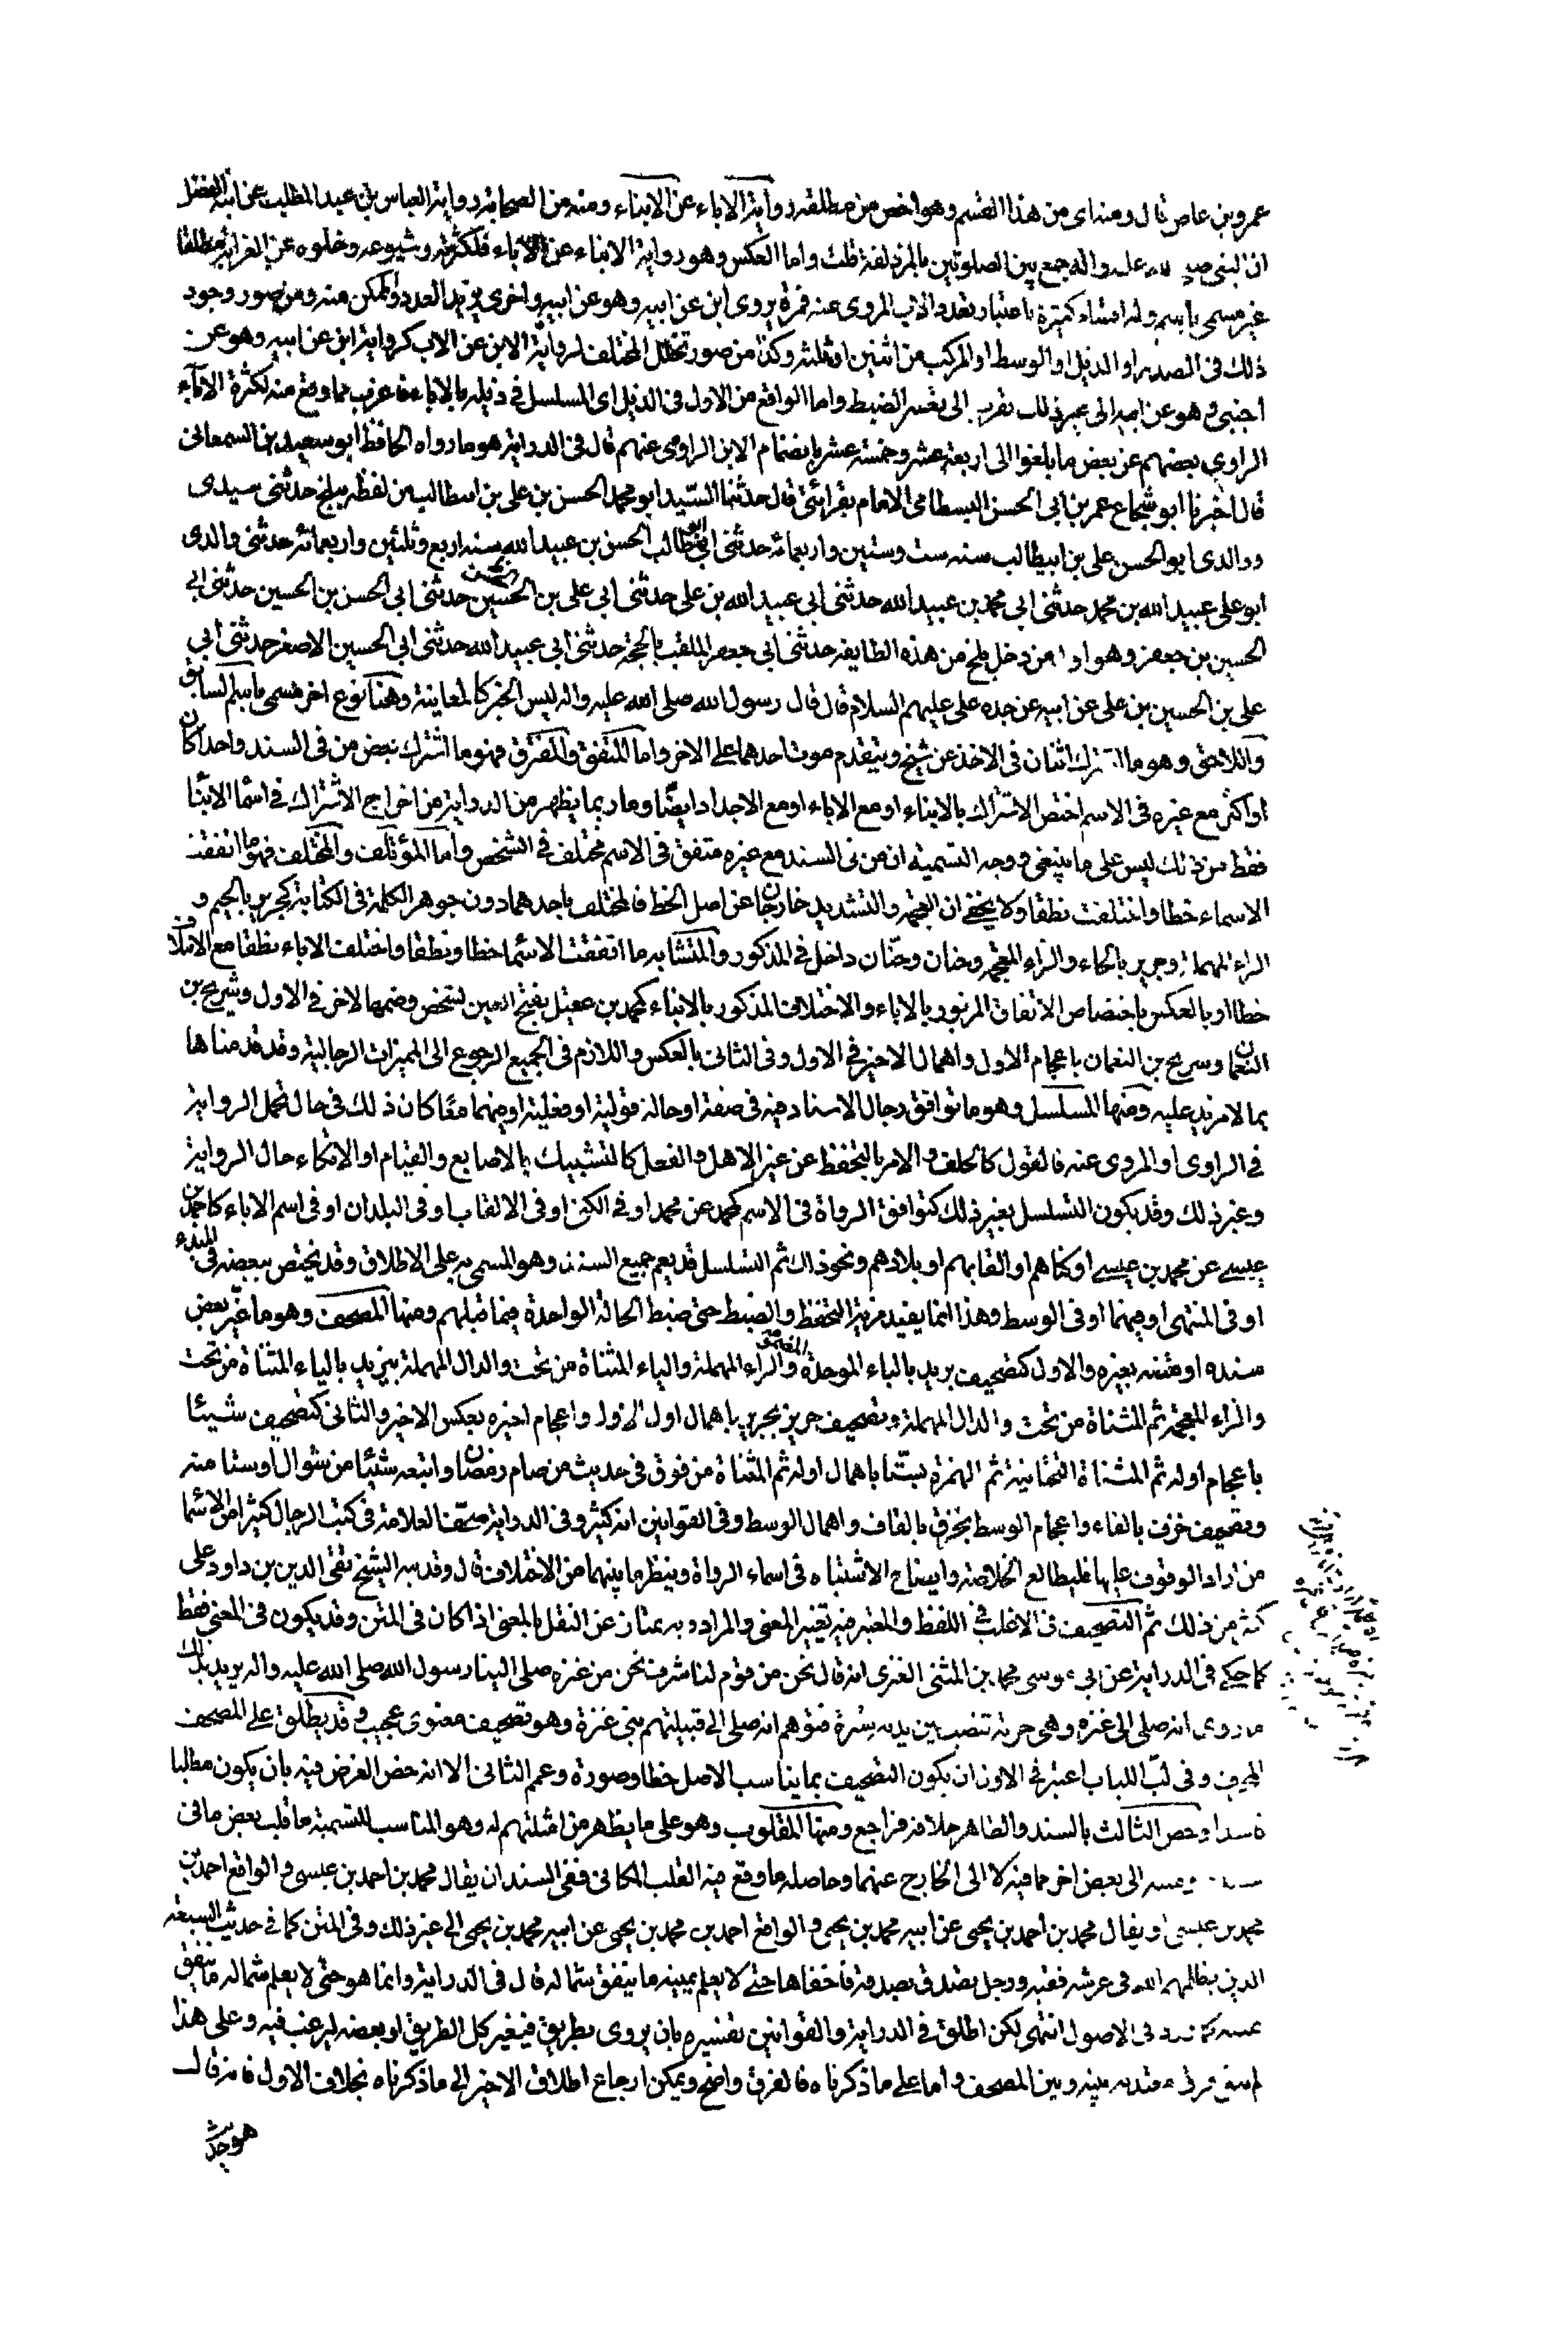 عمرو بن عاص قال ومنه اى من هذا القسم وهو اخص من مطلقه رواية الاباء عن الابناء ومنه من الصحابة رواية العباس بن عبد المطلب عن ابنه الفضل
ان النبى صلى الله عليه واله جمع بين الصلوتين بالمزدلفة قلت واما العكس وهو رواية الابناء عن الاباء فلكثرته وشيوعه وخلوه عن الغرابة مطلقا
غير مسمى باسم وله اقسام كثيرة باعتبار تعدد الاب المروى عنه فمرة يروى ابن عن ابيه وهو عن ابيه واخرى يزيد العدد والممكن منه ومن صور وجود
ذلك فى الصدر او الذيل او الوسط او المركب من اثنين او ثلثه وكذا من صور تخلل المختلف لرواية الابن عن الاب كرواية ابن عن ابيه وهو عن
اجنبى وهو عن ابيه الى غير ذلك يقرب الى تعسر الضبط واما الواقع من الاول فى الذيل اى المسلسل فى ذيله بالاباء فاعرف مما وقع منه لكثرة الاباء
الراوى بعضهم عن بعض ما بلغوا الى اربعة عشر وخمسة عشر بانضمام الابن الراوى عنهم قال فى الدراية هو ما رواه الحافظ ابو سعيد بن السمعانى
قال اخبرنا ابو شجاع عمر بن ابى الحسن البسطامى الامام بقرائتى قال حدثنا السيد ابو محمد الحسن بن على بن ابيطالب من لفظه ببلخ حدثنى سيدى
ووالدى ابو الحسن على بن ابيطالب سنه ست وستين واربعمائه حدثنى ابى ابو طالب الحسن بن عبيد الله سنه اربع وثلثين واربعمائه حدثنى والدى
ابو على عبيد الله بن محمد حدثنى ابى محمد بن عبيد الله حدثنى ابى عبيد الله بن على حدثنى ابى على بن الحسين الحسن حدثنى ابى الحسن بن الحسين حدثنى ابى
الحسين بن جعفر وهو اول من دخل بلخ من هذه الطايفه حدثنى ابى جعفر الملقب بالحجة حدثنى ابى عبيد الله حدثنى ابى الحسين الاصغر حدثنى ابى
على بن الحسين بن على عن ابيه عن جده على عليهم السلام قال قال رسول الله صلى الله عليه واله ليس الخبر كالمعاينة وهنا نوع اخر مسمى باسم السابق
واللاحق وهو ما اشترك اثنان فى الاخذ عن شيخ ويتقدم موت احدهما على الاخر واما المتفق والمفترق فهو ما اشترك بعض من فى السند واحدا كان
او اكثر مع غيره فى الاسم اختص الاشتراك بالابناء او مع الاباء او مع الاجداد ايضا وما ربما يظهر من الدراية من اخراج الاشتراك فى اسماء الابناء
فقط من ذلك ليس على ما ينبغى ووجه التسمية ان من فى السند مع غيره متفق فى الاسم مختلف فى الشخص واما المؤتلف والمختلف فهو ما اتفقت
الاسماء خطا واختلفت نطقا ولا يخفى ان المعجمة والتشديد خارجان عن اصل الخط فالمختلف باحدهما دون جوهر الكلمة فى الكتابة كجرير بالجيم و
الراء المهملة وحريز بالحاء والزاء المعجمه وحنان وحنّان داخل فى المذكور والمتشابه ما اتفقت الاسماء خطا ونطقا واختلفت الاباء نطقا مع الايتلاف
خطا او بالعكس باختصاص الاتفاق المزبور بالاباء والاختلاف المذكور بالابناء كمحمد بن عقيل بفتح العين لشخص وضمها لاخر فى الاول وشريح بن
النعمان وسريج بن النعمان باعجام الاول واهمال الاخير فى الاول وفى الثانى بالعكس واللازم فى الجميع الرجوع الى المميزات الرجالية وقد قدمناها
بما لا مزيد عليه ومنها المسلسل وهو ما توافق رجال الاسناد فيه فى صفة او حالة قولية او فعلية او فيهما معا كان ذلك فى حال تحمل الرواية
فى الراوى او المروى عنه فالقول كالحلف والامر بالتحفظ عن غير الاهل والفعل كالتشبيك بالاصابع والقيام او الاتكاء حال الرواية
وغير ذلك وقد يكون التسلسل بغير ذلك كتوافق الرواة فى الاسم كمحمد عن محمد او فى الكنى او فى الالقاب او فى البلدان او فى اسم الاباء كاحمد بن
عيسى عن محمد بن عيسى او كناهم او القابهم او بلادهم ونحو ذلك ثم التسلسل قد يعم جميع السند وهو المسمى به على الاطلاق وقد يختص ببعضه فى المبدء
او فى المنتهى او فيهما او فى الوسط وهذا انما يفيد مزية التحفظ والضبط حتى ضبط الحالة الواحدة فيما قبلهم ومنها المصحف وهو ما غير بعض
سنده او متنه بغيره والاول كتصحيف بريد بالباء الموحدة المضمومة والراء المهملة والياء المثناة من تحت والدال المهملة بيزيد بالياء المثناة من تحت
والزاء المعجمة ثم المثناة من تحت والدال المهملة وتصحيف حريز بجرير باهمال اول الاول واعجام اخيره بعكس الاخير والثانى كتصحيف شيئا
باعجام اوله ثم المثناة التحتانية ثم الهمزة بستّا باهمال اوله ثم المثناة من فوق فى حديث من صام رمضان واتبعه شيئا من شوال او ستا منه
وتصحيف خزف بالفاء واعجام الوسط بخرق بالقاف واهمال الوسط وفى القوانين انه كثير وفى الدراية صحّف العلامة فى كتب الرجال كثيرا من الاسماء
من اراد الوقوف عليها فليطالع الخلاصه وايضاح الاشتباه فى اسماء الرواة وينظر ما بينهما من الاختلاف قال وقد نبه الشيخ تقى الدين بن داود على
كثير من ذلك ثم التصحيف فى الاغلب فى اللفظ والمعتبر فيه تغيير المعنى والمراد وبه يمتاز عن النقل بالمعنى اذا كان فى المتن وقد يكون فى المعنى فقط
كما حكى فى الدراية عن ابى موسى محمد بن المثنى العنزى انه قال نحن من قوم لنا شرف نحن من عنزه صلى الينا رسول الله صلى الله عليه واله يريد بذلك
ما روى انه صلى الى عنزه وهى حربة تنصب بين يديه سترة فتوهم انه صلى الى قبيلتهم بنى عنزة وهو تصحيف معنوى عجيب وقد يطلق على المصحف
المحرف وفى لبّ اللباب اعتبر فى الاول ان يكون التصحيف بما يناسب الاصل خطا وصورة وعمم الثانى الا انه خص الغرض فيه بان يكون مطلبا
فاسدا وخص الثالث بالسند والظاهر خلافه فراجع ومنها المقلوب وهو على ما يظهر من امثلتهم له وهو المناسب للتسمية ما قلب بعض ما فى
الى بعض اخر مما فيه لا الى الخارج عنهما وحاصله ما وقع فيه القلب المكانى ففى السند ان يقال محمد بن احمد بن عيسى والواقع احمد بن
محمد بن عيسى او يقال محمد بن احمد بن يحيى عن ابيه محمد بن يحيى والواقع احمد بن محمد بن يحيى عن ابيه محمد بن يحيى الى غير ذلك وفى المتن كما فى حديث السبعه
الذين يظلهم الله فى عرشه ففيه ورجل تصدق بصدقة فاخفاها حتى لا يعلم يمينه ما يتفق شماله قال فى الدراية وانما هو حتى لا يعلم شماله ما ينفق
يمينه كما ورد فى الاصول انتهى لكن اطلق فى الدراية والقوانين تفسيره بان يروى بطريق فيغير كل الطريق او بعضه ليرغب فيه وعلى هذا
بينه وبين المصحف واما على ما ذكرناه فالفرق واضح ويمكن ارجاع اطلاق الاخير الى ما ذكرناه بخلاف الاول فانه قال
هو حديث